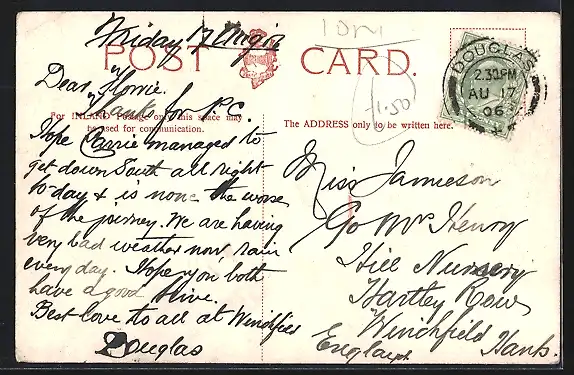 Friday 17 Aug
POST CARD.
IOM
1.50
DOUGLAS
2.30PM
AU 17
06
Dear Florrie.
Thanks for P.C.
For INLAND Postage only this space may
be used for communication.
The ADDRESS only to be written here.
Hope Carrie managed to
get down South all right
to-day & is none the worse
of the journey. We are having
very bad weather now rain
every day. Hope you both
have a good time.
Best love to all at Winchfield
Douglas
Miss Jamieson
C/o Mrs Henry
Hill Nursery
Hartley Row
Winchfield
England Hants.